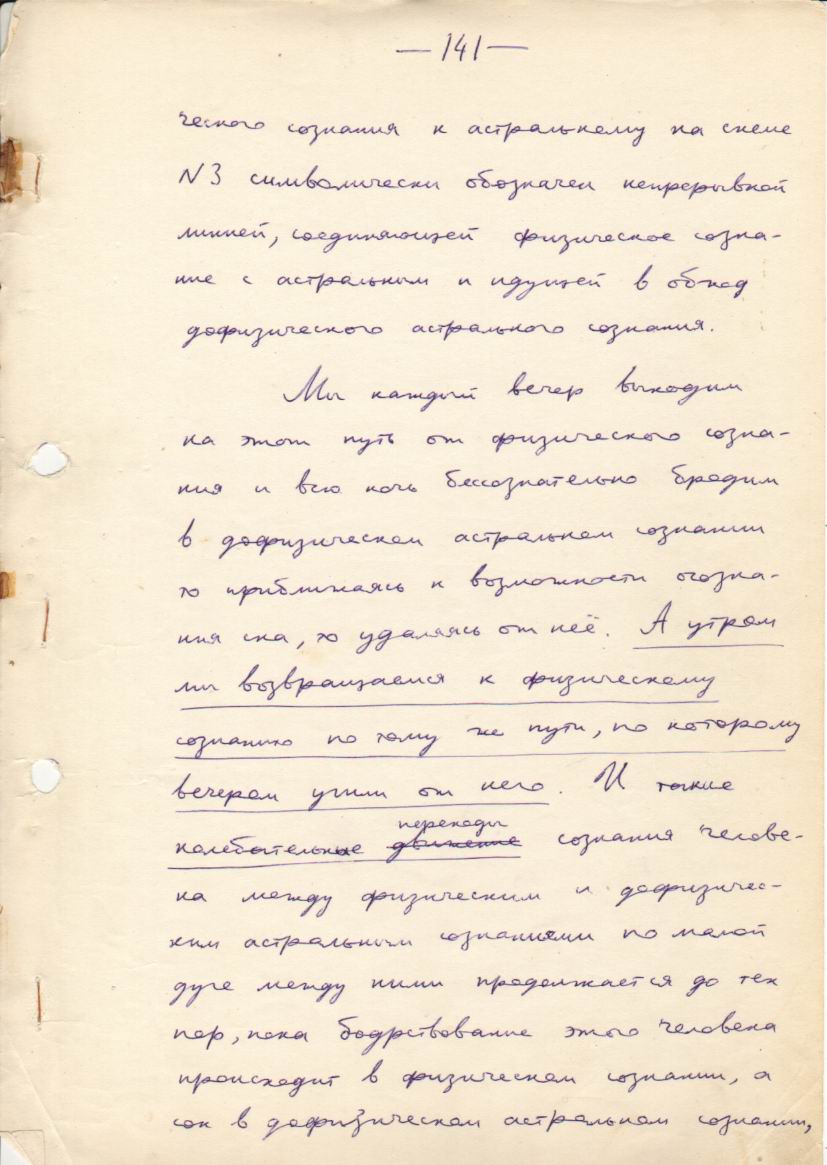 — 141 —
ческого сознания к астральному на схеме
N 3 символически обозначен непрерывной
линией, соединяющей физическое созна-
ние с астральным и идущей в обход
дофизического астрального сознания.
Мы каждый вечер выходим
на этот путь от физического созна-
ния и всю ночь бессознательно бродим
в дофизическом астральном сознании
то приближаясь к возможности осозна-
ния сна, то удаляясь от неё. А утром
мы возвращаемся к физическому
сознанию по тому же пути, по которому
вечером ушли от него. И такие
переходы
колебательные движение сознания челове-
ка между физическим и дофизичес-
ким астральным сознаниями по малой
дуге между ними продолжается до тех
пор, пока бодрствование этого человека
происходит в физическом сознании, а
сон в дофизическом астральном сознании,